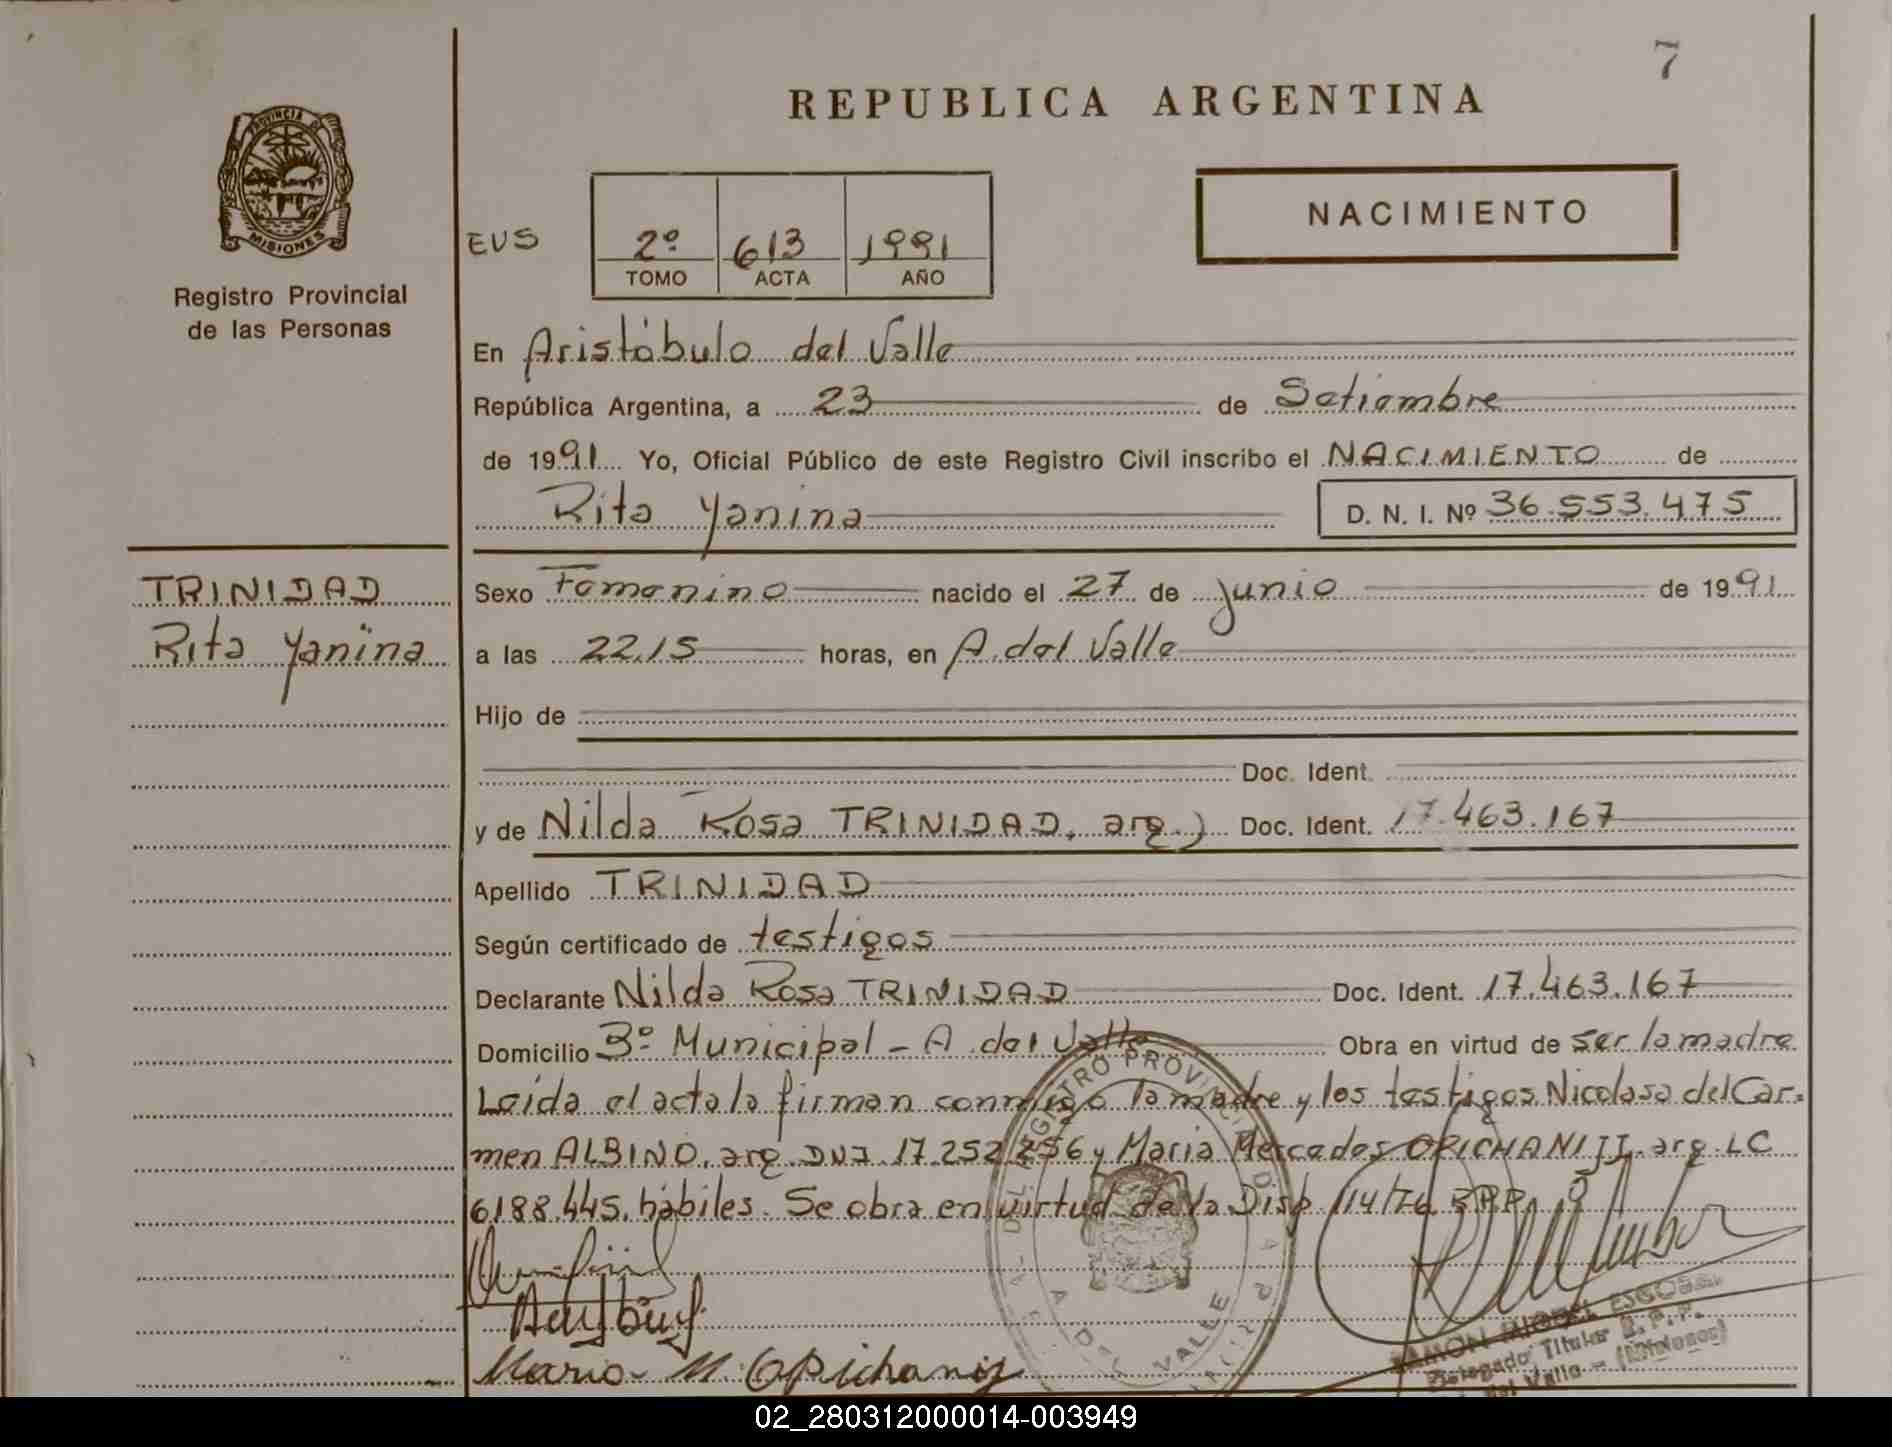 7
REPUBLICA ARGENTINA
PROVINCIA DE
MISIONES
Registro Provincial
de las Personas
EUS
2º 613 1991
TOMO ACTA AÑO
NACIMIENTO
En Aristóbulo del Valle
República Argentina, a 23 de Setiembre
de 1991 Yo, Oficial Público de este Registro Civil inscribo el NACIMIENTO de
Rita Yanina D. N. I. Nº 36.553.475
TRINIDAD
Rita Yanina
Sexo Femenino nacido el 27 de junio de 1991
a las 22,15 horas, en A. del Valle
Hijo de
Doc. Ident.
y de Nilda Rosa TRINIDAD, arg.) Doc. Ident. 17.463.167
Apellido TRINIDAD
Según certificado de testigos
Declarante Nilda Rosa TRINIDAD Doc. Ident. 17.463.167
Domicilio Bº Municipal - A. del Valle Obra en virtud de ser la madre.
Leída el acta la firman conmigo la madre y los testigos Nicolasa del Car-
men ALBINO, arg. DNI. 17.252.256 y María Mercedes OPICHANIJ, arg. LC
6188.445, hábiles. Se obra en virtud de la Disp. 114/76 RPP.
REGISTRO PROVINCIAL DE
DEL VALLE
Maria M. Opichanij
RAMON MIGUEL
Delegado Titular R.P.P.
del Valle - (Misiones)
02_280312000014-003949